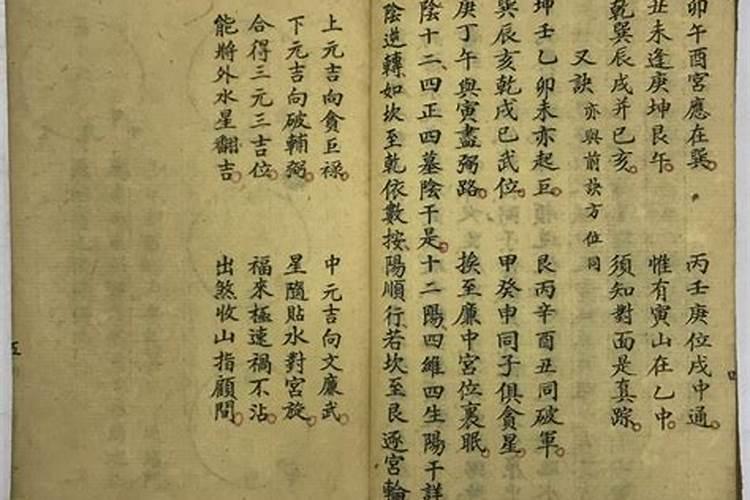 卯午酉宮應在巽 丙壬庚位戌中通
丑未逢庚坤艮午 惟有寅山在乙中
乾巽辰戌并巳亥 須知對面是真踪
又訣 亦與前訣方位同
坤壬乙卯未亦起巨 艮丙辛酉丑同破軍
巽辰亥乾戌巳武位 甲癸申同子俱貪星
庚丁午與寅盡弼路 挨至廉中宮位裏眠
陰十二四正四墓陰干是 十二陽四維四生陽干詳
陰逆轉如坎至乾依數按 陽順行若坎至艮逐宮輪
上元吉向貪巨祿 中元吉向文廉武
下元吉向破輔弼 星隨貼水對宮旋
合得三元三吉位 福來極速禍不沾
能將外水星翻吉 出煞收山指顧間
五